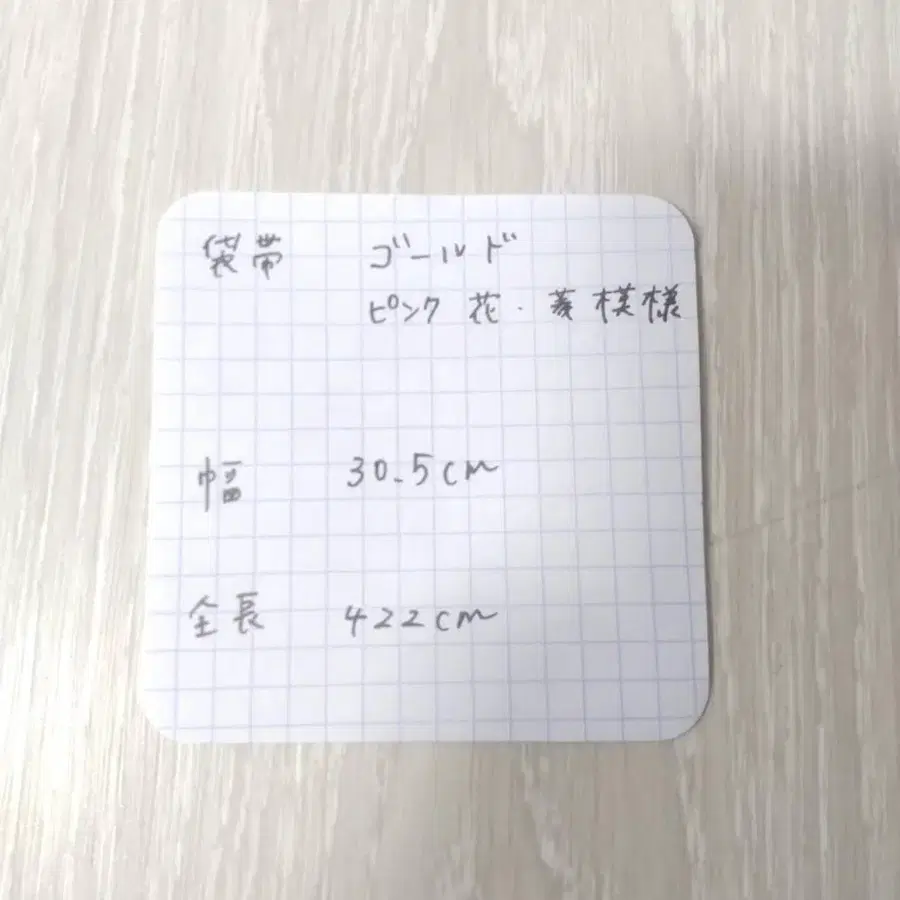 袋帯 ゴールド
ピンク 花・菱模様
幅 30.5cm
全長 422cm